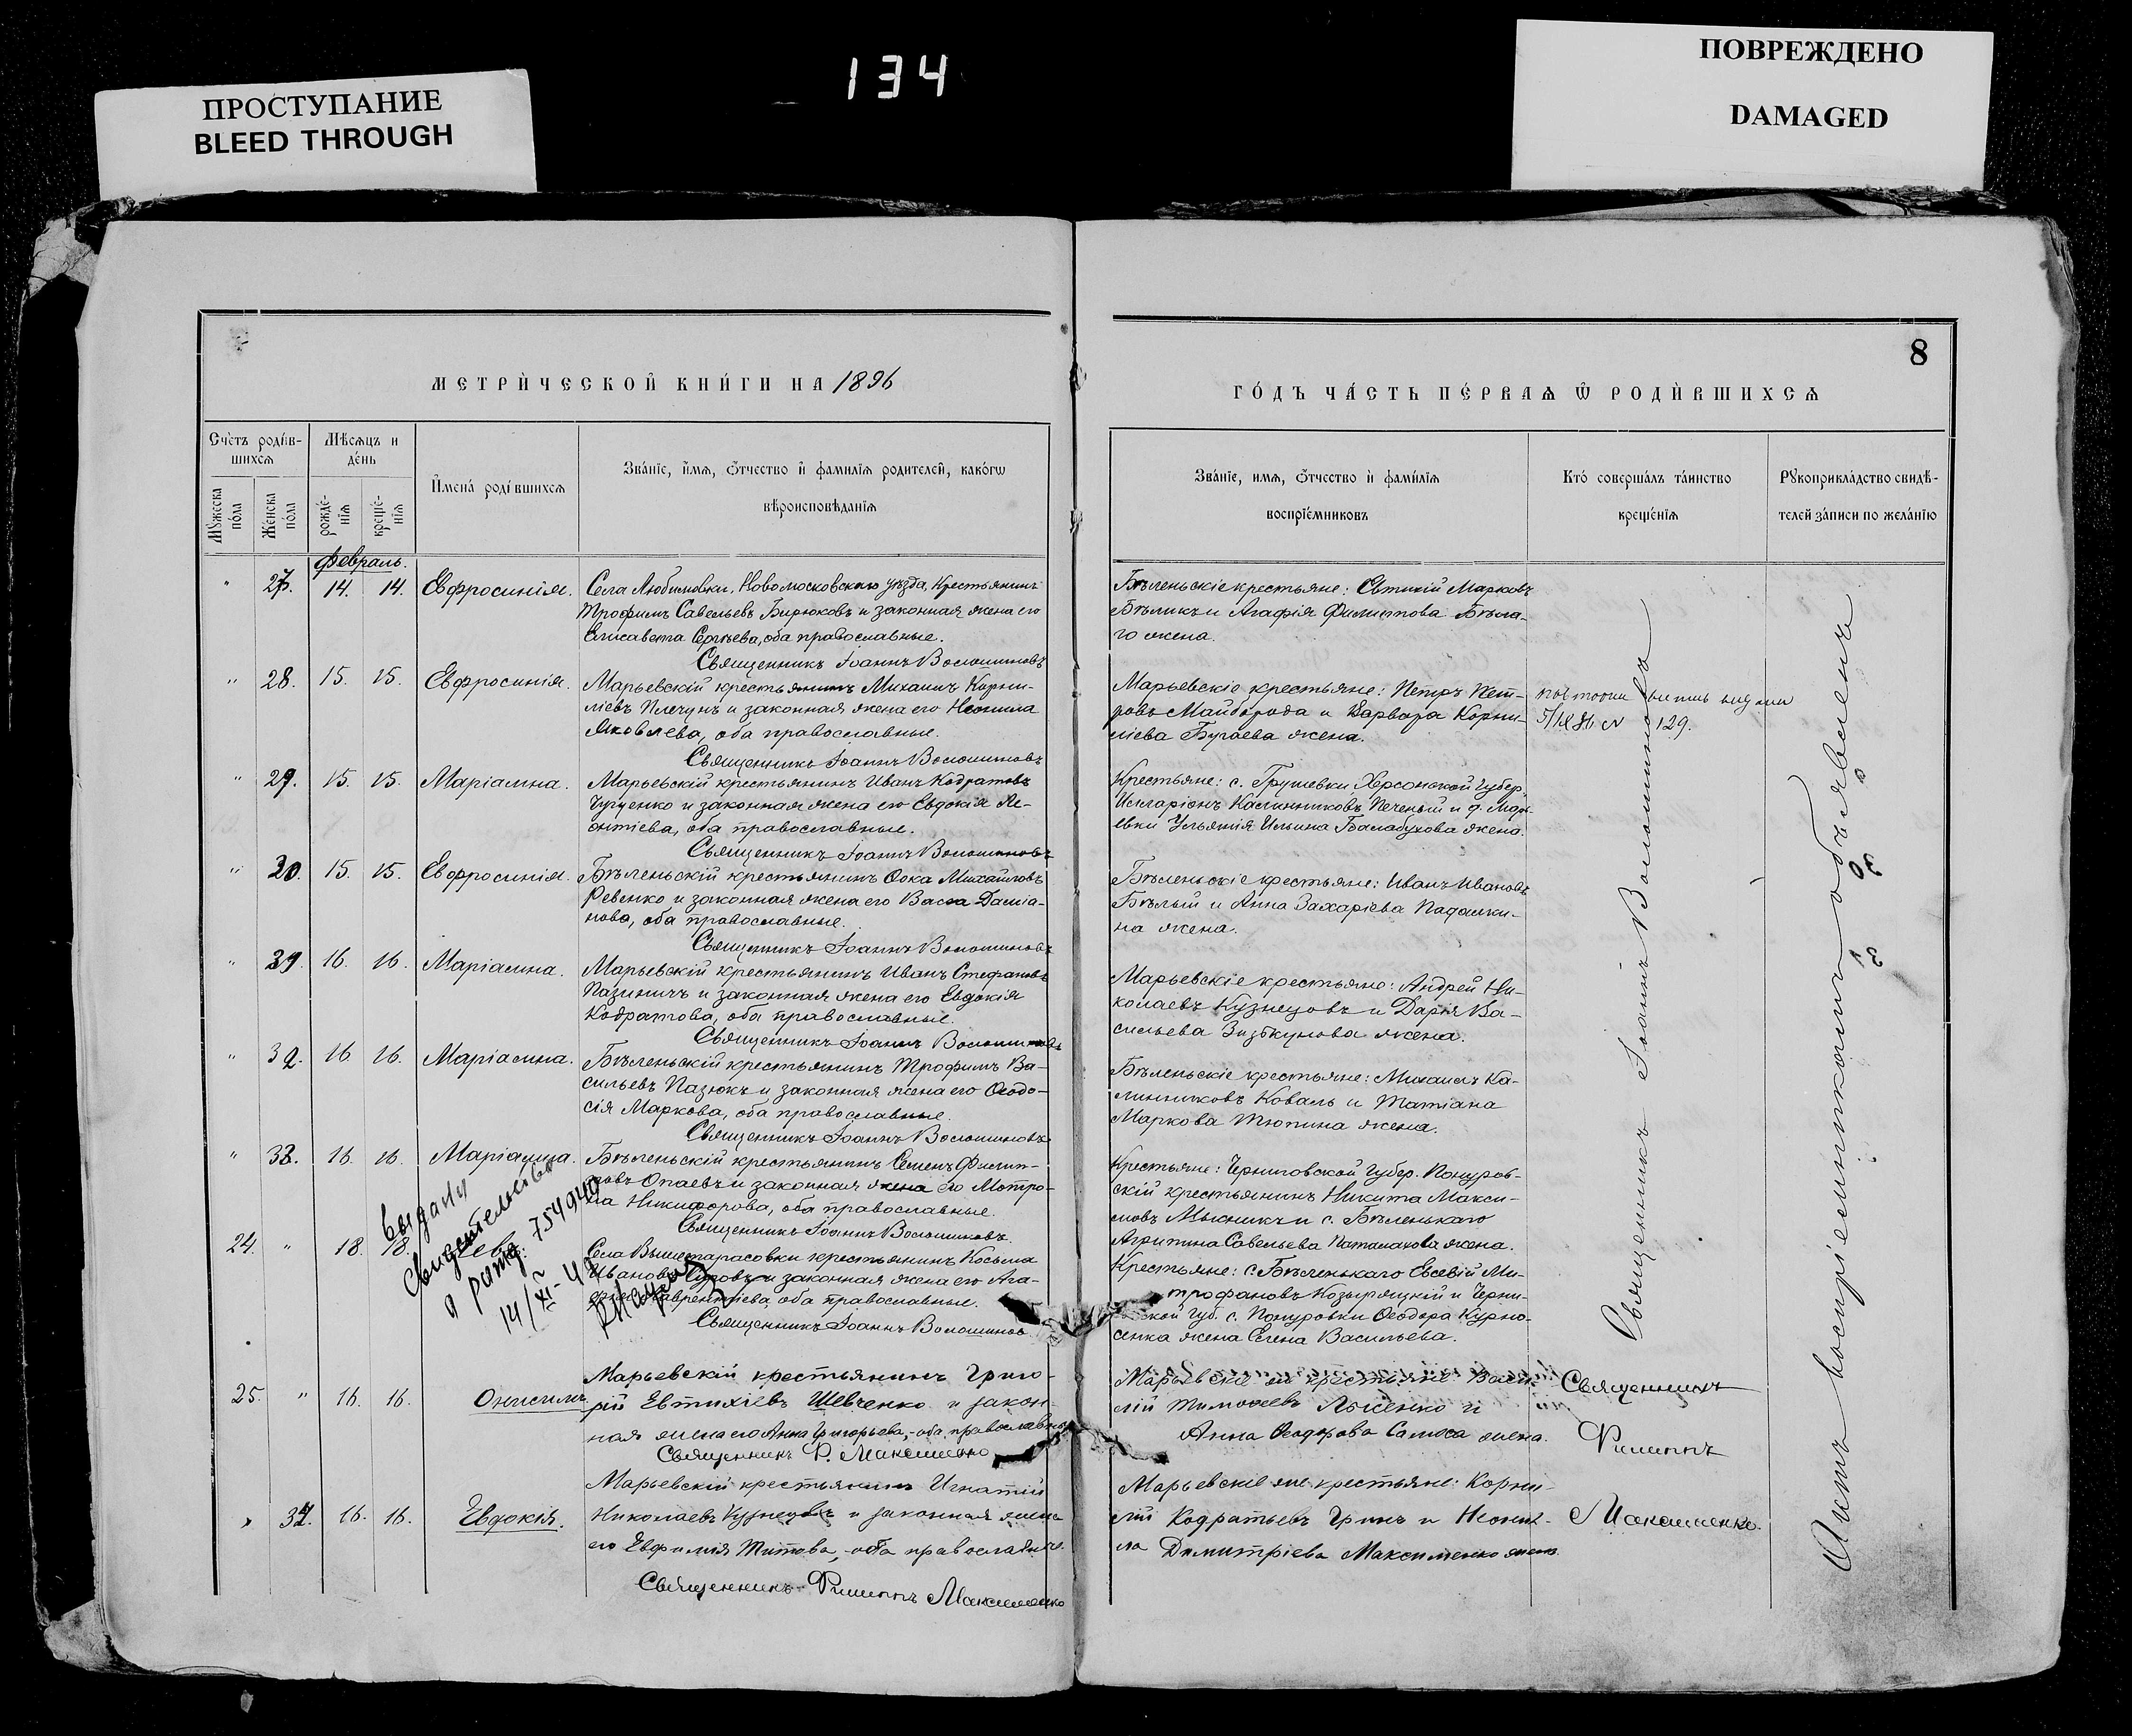 134
ПРОСТУПАНИЕ
BLEED THROUGH
ПОВРЕЖДЕНО
DAMAGED
8
МЕТРИ́ЧЕСКОЙ КНИ́ГИ НА 1896
ГО́ДЪ ЧА́СТЬ ПЕ́РВАѦ Ѿ РОДИ́ВШИХСѦ
Счётъ роди́в-
шихсѧ
Мꙋ́жеска по́ла
Же́нска по́ла
Мѣ́сѧцъ и
де́нь
рожде́-
нїѧ
креще́-
нїѧ
И҆мена̀ роди́вшихсѧ
Зва́нїе, и҆́мѧ, ѻ҆́тчество и҆ фами́лїѧ родителей, како́гѡ
вѣроисповѣ́данїѧ
Зва́нїе, имѧ, ѻ҆́тчество и҆ фами́лїѧ
воспрїе́мниковъ
Кто́ соверша́лъ та́инство
креще́нїѧ
Рꙋкоприкла́дство свидѣ́-
телей за́писи по жела́нїю
Февраль.
" 27. 14. 14. Евфросинія.
Села Любимовки, Новомосковскаго уѣзда, крестьянинъ
Трофимъ Савельевъ Бирюковъ и законная жена его
Елисавета Сергѣева, оба православные.
Священникъ Іоаннъ Волошиновъ
Бѣленьскіе крестьяне: Евтихій Марковъ
Бѣликъ и Агафія Филиппова Бѣла-
го жена.
" 28. 15. 15. Евфросинія.
Марьевскій крестьянинъ Михаилъ Корни-
ліевъ Плечунъ и законная жена его Неонила
Яковлева, оба православные.
Священникъ Іоаннъ Волошиновъ
Марьевскіе крестьяне: Петръ Пет-
ровъ Майборода и Варвара Корни-
ліева Бугаева жена.
129.
" 29. 15. 15. Маріамна.
Марьевскій крестьянинъ Иванъ Кодратовъ
и законная жена его Евдокія Ле-
онтіева, оба православные.
Священникъ Іоаннъ Волошиновъ
Крестьяне: с. Грушевки, Херсонской губер.
Илларіонъ Калинниковъ Печеный и д. Марь-
евки Ульянія Ильина Балабухова жена.
" 30. 15. 15. Евфросинія.
Бѣленьскій крестьянинъ Фока Михайловъ
Ревенко и законная жена его Васса Даміа-
нова, оба православные.
Священникъ Іоаннъ Волошиновъ
Бѣленьскіе крестьяне: Иванъ Ивановъ
Бѣлый и Анна Захаріева Падалки-
на жена.
" 31. 16. 16. Маріамна.
Марьевскій крестьянинъ Иванъ Стефановъ
Пазиничъ и законная жена его Евдокія
Кодратова, оба православные.
Священникъ Іоаннъ Волошиновъ
Марьевскіе крестьяне: Андрей Ни-
колаевъ Кузнецовъ и Дарія Ва-
сильева жена.
" 32. 16 16. Маріамна.
Бѣленьскій крестьянинъ Трофимъ Ва-
сильевъ Пазюкъ и законная жена его Ѳеодо-
сія Маркова, оба православные.
Священникъ Іоаннъ Волошиновъ
Бѣленьскіе крестьяне: Михаилъ Ка-
линниковъ Коваль и Татіана
Маркова Тюпина жена.
" 33. 16. 16. Маріамна.
Бѣленьскій крестьянинъ Семенъ Филип-
повъ Опаевъ и законная жена его Матро-
на Никифорова, оба православные.
Священникъ Іоаннъ Волошиновъ.
Крестьяне: Черниговской губер. Понуров-
скій крестьянинъ Никита Макси-
мовъ Мысникъ и с. Бѣленькаго
Агрипина Савельева Паталахова жена.
24. " 18. 18. Левъ.
Села Вышетарасовки крестьянинъ Косьма
Ивановъ и законная жена его Ага-
Лаврентіева, оба православные.
Священникъ Іоаннъ Волошиновъ
Крестьяне: с. Бѣленькаго Евсевій Ми-
трофановъ и Черни-
ской губ. с. Понуровки Ѳеодора Курно-
сенка жена Елена Васильева.
выдану
свидетельство
754940
14/XI-4
25. " 16. 16. Онисимъ
Марьевскій крестьянинъ Григо-
рій Евтихіевъ Шевченко и закон-
ная жена его Анна Григорьева, - оба православные
Священникъ Ф. Максименко
Марьевскіе же крестьяне Васи-
лій Тимоѳеевъ Лысенко и
Анна Ѳеодорова жена.
Священникъ
Филиппъ
Максименко.
" 34. 16. 16. Евдокія.
Марьевскій крестьянинъ Игнатій
Николаевъ Кузнецовъ и законная жена
его Евфимія Титова, - оба православные.
Священникъ Филиппъ Максименко
Марьевскіе же крестьяне: Корни-
лій Кодратьевъ Гринь и Неони-
ла Димитріева Максименко жена.
Священникъ Іоаннъ Волошиновъ
Актъ воспріемникамъ объявленъ